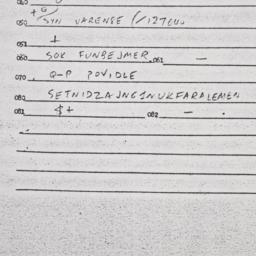 050 SYN VARENSE
051 +
060 SOK FUNBEJMER 061 —
070 Q-P POVIDLE
080 SETNIDZAJNGINUKFARALEMEN
081 $+ 082 —